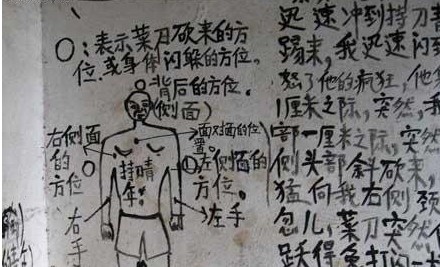 〇：表示菜刀砍来的方
位或身体闪躲的方位。
背后的方位。
(侧面)
右侧面
的
方位
右
手
面对面的位
置。
①左侧面的
方位。
左手
持
年
睛
迅速冲到持刀
踢来，我迅速闪
怒了他的疯狂，他
1厘米之际，突然，我
部一厘米之际，突然
侧头部斜砍来，
猛向我右侧，颈
忽儿，菜刀突然
跃得